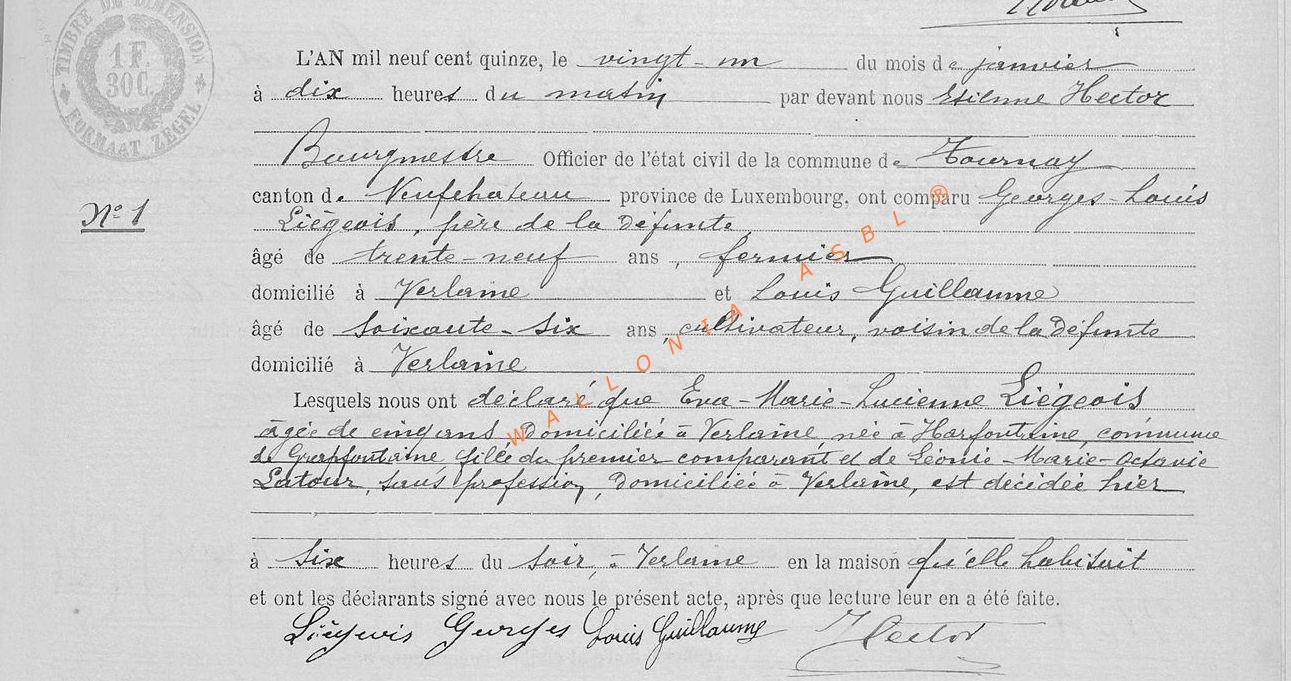 TIMBRE DE DIMENSION
1 F.
30 C.
FORMAAT ZEGEL
L'AN mil neuf cent quinze, le vingt-un du mois de janvier
à dix heures du matin par devant nous Etienne Hector
Bourgmestre Officier de l'état civil de la commune de Tournay
canton de Neufchateau province de Luxembourg, ont comparu Georges-Louis
N° 1
Liégeois, père de la défunte,
âgé de trente-neuf ans, fermier
domicilié à Verlaine et Louis Guillaume
âgé de soixante-six ans, cultivateur, voisin de la défunte
domicilié à Verlaine
Lesquels nous ont déclaré que Eva-Marie-Lucienne Liégeois
âgée de cinq ans, domiciliée à Verlaine, née à Harfontaine, commune
de Grapfontaine fille du premier comparant et de Léonie-Marie-Octavie
Latour, sans profession, domiciliée à Verlaine, est décédée hier
à six heures du soir, à Verlaine en la maison qu'elle habitait
et ont les déclarants signé avec nous le présent acte, après que lecture leur en a été faite.
Liégeois Georges Louis Guillaume Hector
WALLONIA ASBL ®